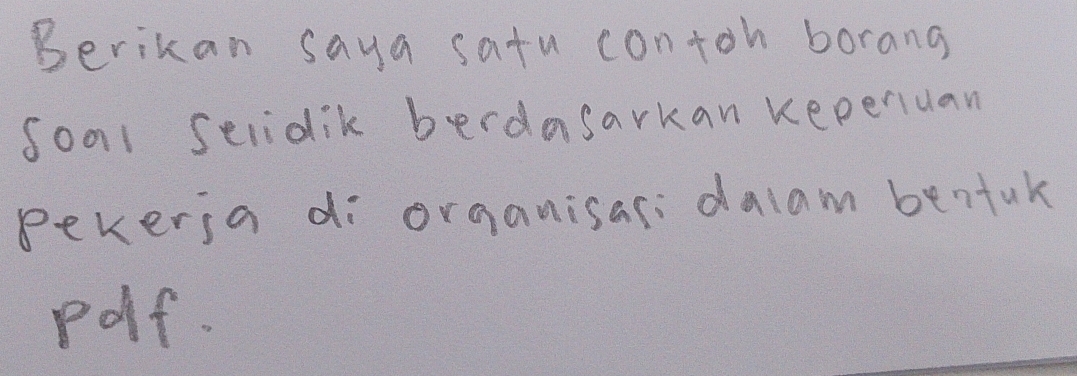 Berikan saya satu contoh borang
soal selidik berdasarkan keperluan
pekerja di organisasi dalam bentuk
pdf.